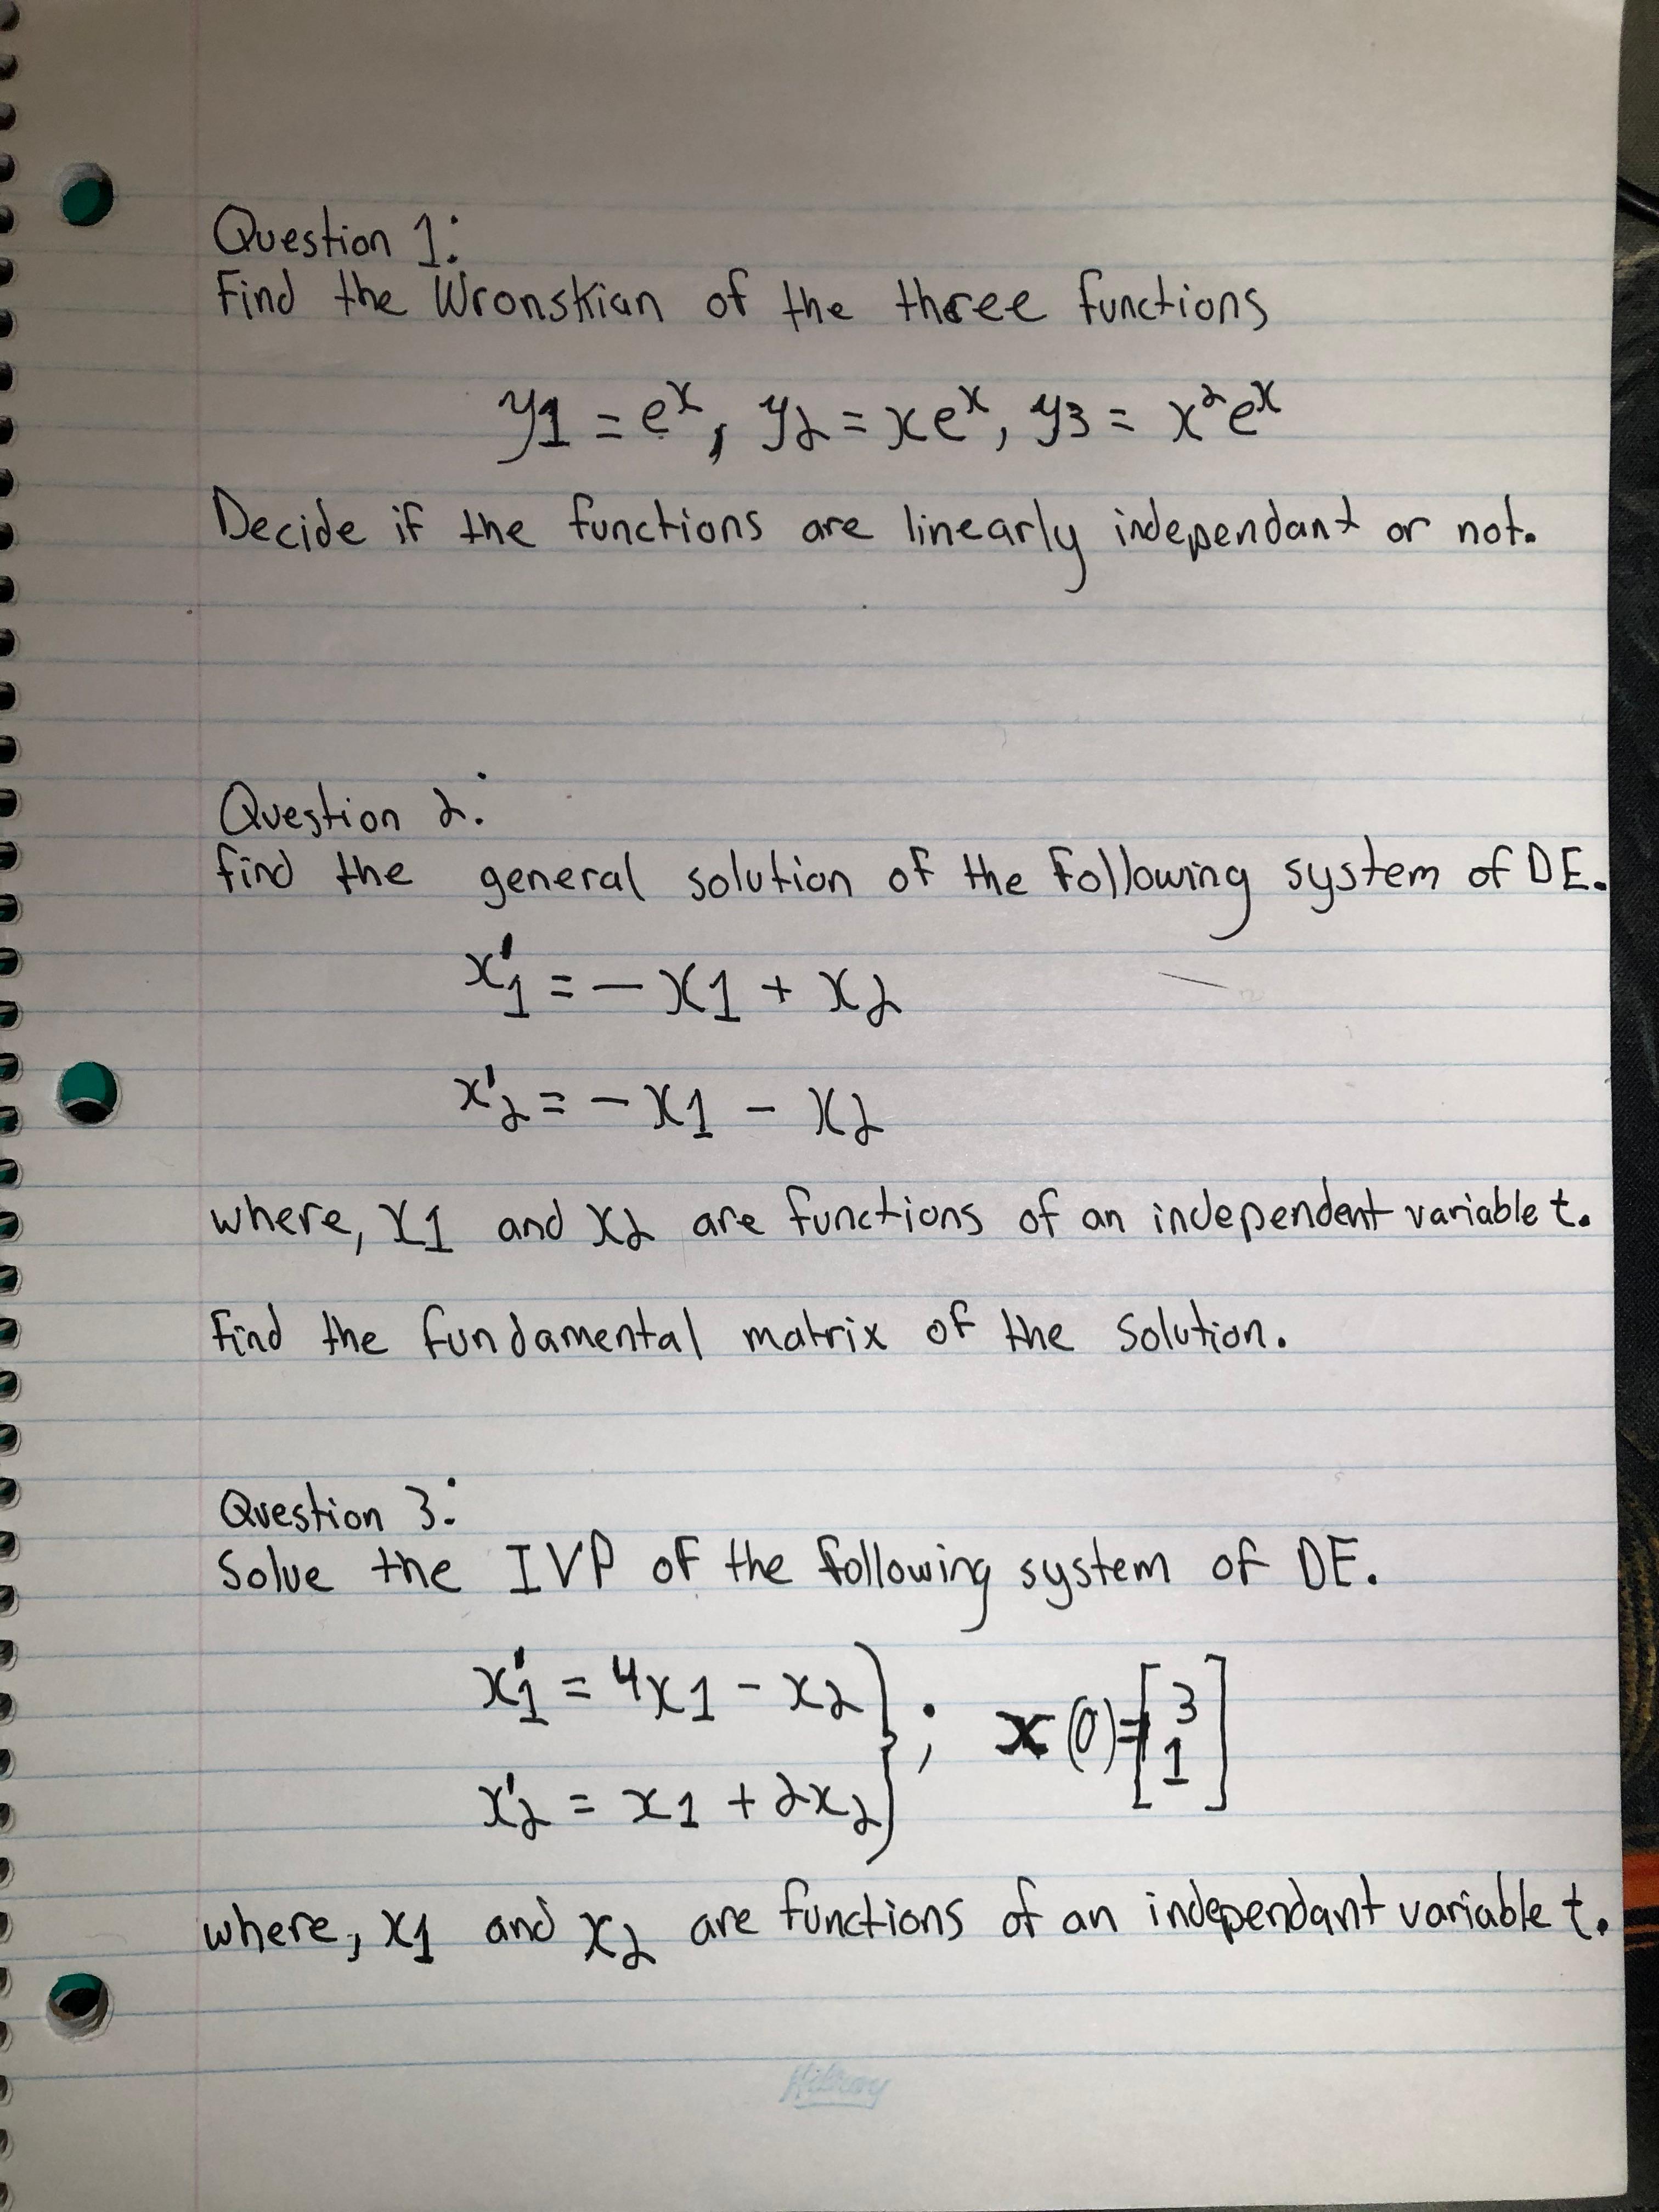 Question 1:
Find the Wronskian of the three functions
y1 = eˣ, y2 = xeˣ, y3 = x²eˣ
Decide if the functions are linearly independant or not.
Question 2:
find the general solution of the following system of DE.
x'1 = - x1 + x2
x'2 = - x1 - x2
where, x1 and x2 are functions of an independent variable t.
Find the fundamental matrix of the solution.
Question 3:
Solve the IVP of the following system of DE.
x'1 = 4x1 - x2 } ; x(0) = [3 1]
x'2 = x1 + 2x2
where, x1 and x2 are functions of an independant variable t.
Hilroy